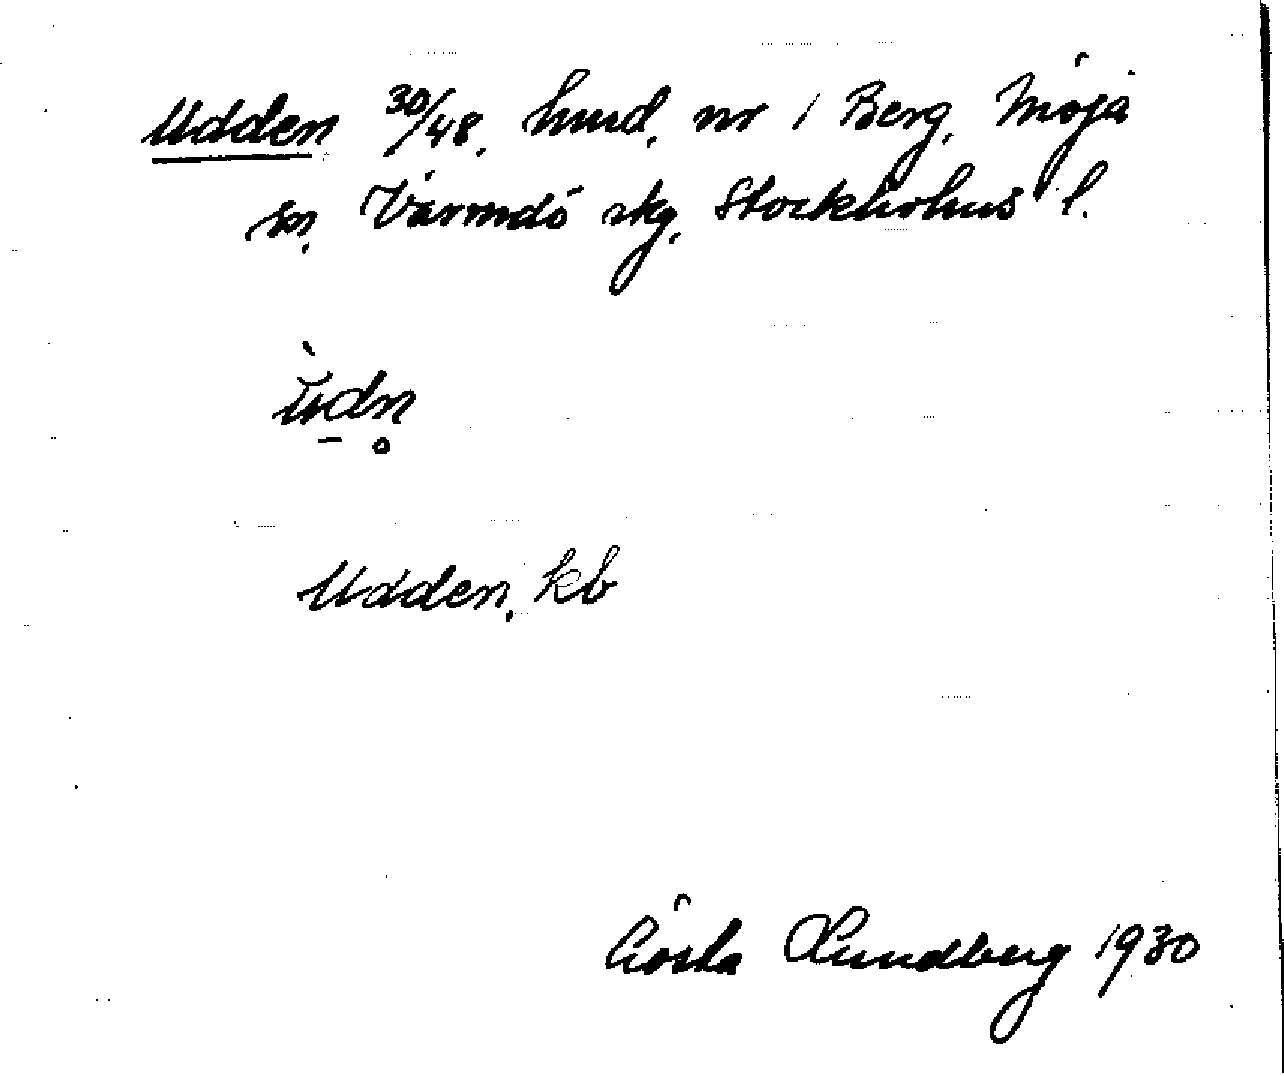 Udden 30/48, hmd. nr 1 Berg, Möja
sn, Värmdö skg, Stockholms l.
ùdn̥
Udden, kb
Gösta Lundberg 1930